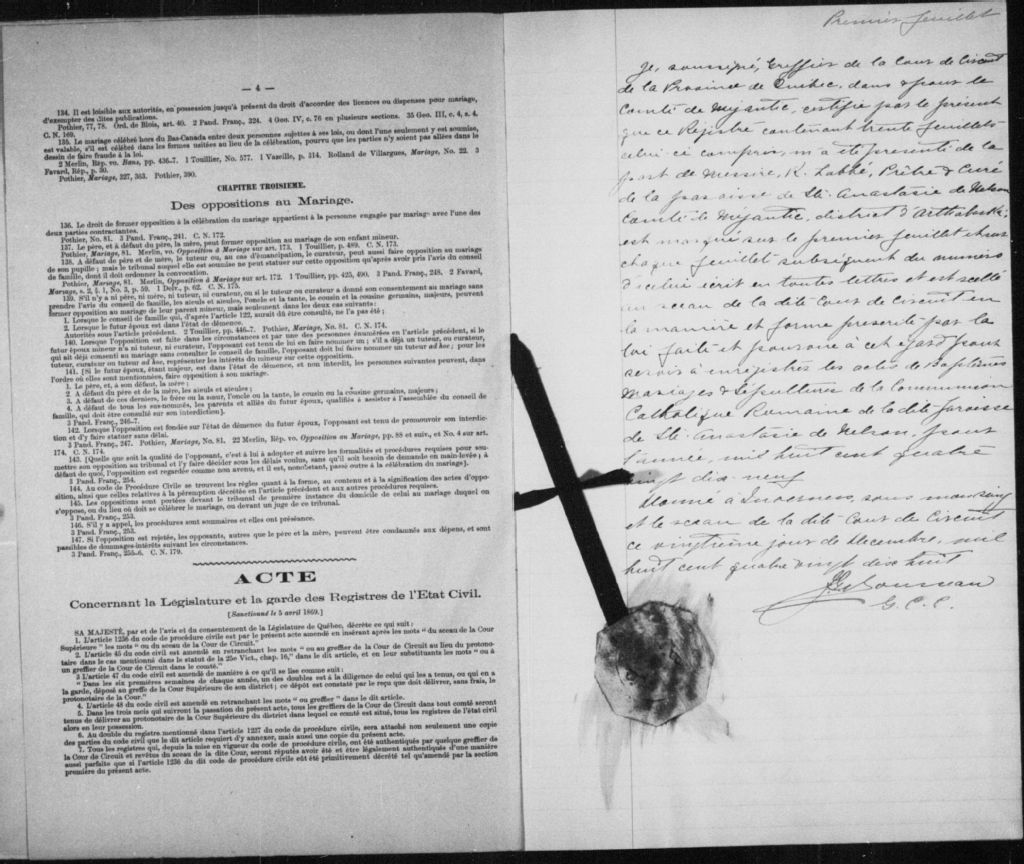 — 4 —
134. Il est loisible aux autorités, en possession jusqu'à présent du droit d'accorder des licences ou dispenses pour mariage,
d'exempter des dites publications.
Pothier, 77, 78. Ord. de Blois, art. 40. 2 Pand. Franç., 324. 4 Geo. IV, c. 76 en plusieurs sections. 35 Geo. III, c. 4, s. 4.
C. N. 169.
135. Le mariage célébré hors du Bas-Canada entre deux personnes sujettes à ses lois, ou dont l'une seulement y est soumise,
est valable, s'il est célébré dans les formes usitées au lieu de la célébration, pourvu que les parties n'y soient pas allées dans le
dessin de faire fraude à la loi.
2 Merlin, Rép. vo. Bans, pp. 436-7. 1 Touillier, No. 577. 1 Vazeille, p. 314. Rolland de Villargues, Mariage, No. 22. 3
Favard, Rép., p. 30.
Pothier, Mariage, 327, 363. Pothier, 390.
CHAPITRE TROISIEME.
Des oppositions au Mariage.
136. Le droit de former opposition à la célébration du mariage appartient à la personne engagée par mariage avec l'une des
deux parties contractantes.
Pothier, No. 81. 3 Pand. Franç., 241. C. N. 172.
137. Le père, et à défaut du père, la mère, peut former opposition au mariage de son enfant mineur.
Pothier, Mariage, 81. Merlin, vo. Opposition à Mariage sur art. 173. 1 Touillier, p. 489. C. N. 173.
138. A défaut de père et de mère, le tuteur ou, au cas d'émancipation, le curateur, peut aussi faire opposition au mariage
de son pupille; mais le tribunal auquel elle est soumise ne peut statuer sur cette opposition qu'après avoir pris l'avis du conseil
de famille, dont il doit ordonner la convocation.
Pothier, Mariage, 81. Merlin, Opposition à Mariage sur art. 172. 1 Touillier, pp. 425, 490. 3 Pand. Franç., 248. 2 Favard,
Mariage, s. 2, § 1, No. 3, p. 59. 1 Delv., p. 62. C. N. 175.
139. S'il n'y a ni père, ni mère, ni tuteur, ni curateur, ou si le tuteur ou curateur a donné son consentement au mariage sans
prendre l'avis du conseil de famille, les aïeuls et aïeules, l'oncle et la tante, le cousin et la cousine germains, majeurs, peuvent
former opposition au mariage de leur parent mineur, mais seulement dans les deux cas suivants:
1. Lorsque le conseil de famille qui, d'après l'article 122, aurait dû être consulté, ne l'a pas été;
2. Lorsque le futur époux est dans l'état de démence.
Autorités sous l'article précédent. 2 Touillier, pp. 446-7. Pothier, Mariage, No. 81. C. N. 174.
140. Lorsque l'opposition est faite dans les circonstances et par une des personnes énumérées en l'article précédent, si le
futur époux mineur n'a ni tuteur, ni curateur, l'opposant est tenu de lui en faire nommer un; s'il a déjà un tuteur, ou curateur,
qui ait déjà consenti au mariage sans consulter le conseil de famille, l'opposant doit lui faire nommer un tuteur ad hoc; pour les
tuteur, curateur ou tuteur ad hoc, représenter les intérêts du mineur sur cette opposition.
141. [Si le futur époux, étant majeur, est dans l'état de démence, et non interdit, les personnes suivantes peuvent, dans
l'ordre où elles sont mentionnées, faire opposition à son mariage.
1. Le père, et, à son défaut, la mère;
2. A défaut du père et de la mère, les aïeuls et aïeules;
3. A défaut de ces derniers, le frère ou la sœur, l'oncle ou la tante, le cousin ou la cousine germains, majeurs;
4. A défaut de tous les sus-nommés, les parents et alliés du futur époux, qualifiés à assister à l'assemblée du conseil de
famille, qui doit être consulté sur son interdiction].
3 Pand. Franç., 246-7.
142. Lorsque l'opposition est fondée sur l'état de démence du futur époux, l'opposant est tenu de promouvoir son interdic-
tion et d'y faire statuer sans délai.
3 Pand. Franç., 247. Pothier, Mariage, No. 81. 22 Merlin, Rép. vo. Opposition au Mariage, pp. 88 et suiv., et No. 4 sur art.
174. C. N. 174.
143. [Quelle que soit la qualité de l'opposant, c'est à lui à adopter et suivre les formalités et procédures requises pour sou-
mettre son opposition au tribunal et l'y faire décider sous les délais voulus, sans qu'il soit besoin de demande en main-levée; à
défaut de quoi, l'opposition est regardée comme non avenu, et il est, nonobstant, passé outre à la célébration du mariage].
3 Pand. Franç., 254.
144. Au code de Procédure Civile se trouvent les règles quant à la forme, au contenu et à la signification des actes d'oppo-
sition, ainsi que celles relatives à la péremption décrétée en l'article précédent et aux autres procédures requises.
145. Les oppositions sont portées devant le tribunal de première instance du domicile de celui au mariage duquel on
s'oppose, ou du lieu où doit se célébrer le mariage, ou devant un juge de ce tribunal.
3 Pand. Franç., 253.
146. S'il y a appel, les procédures sont sommaires et elles ont préséance.
3 Pand. Franç., 253.
147. Si l'opposition est rejetée, les opposants, autres que le père et la mère, peuvent être condamnés aux dépens, et sont
passibles de dommages-intérêts suivant les circonstances.
3 Pand. Franç., 255-6. C. N. 179.
ACTE
Concernant la Législature et la garde des Registres de l'Etat Civil.
[Sanctionné le 5 avril 1869.]
SA MAJESTÉ, par et de l'avis et du consentement de la Législature de Québec, décrète ce qui suit:
1. L'article 1236 du code de procédure civile est par le présent acte amendé en insérant après les mots "du sceau de la Cour
Supérieure" les mots "ou du sceau de la Cour de Circuit."
2. L'article 45 du code civil est amendé en retranchant les mots "ou au greffier de la Cour de Circuit au lieu du protono-
taire dans le cas mentionné dans le statut de la 25e Vict., chap. 16," dans le dit article, et en leur substituant les mots "ou à
un greffier de la Cour de Circuit dans le comté."
3 L'article 47 du code civil est amendé de manière à ce qu'il se lise comme suit:
"Dans les six premières semaines de chaque année, un des doubles est à la diligence de celui qui les a tenus, ou qui en a
la garde, déposé au greffe de la Cour Supérieure de son district; ce dépôt est constaté par le reçu que doit délivrer, sans frais, le
protonotaire de la Cour."
4. L'article 48 du code civil est amendé en retranchant les mots "ou greffier" dans le dit article.
5. Dans les trois mois qui suivront la passation du présent acte, tous les greffiers de la Cour de Circuit dans tout comté seront
tenus de délivrer au protonotaire de la Cour Supérieure du district dans lequel ce comté est situé, tous les registres de l'état civil
alors en leur possession.
6. Au double du registre mentionné dans l'article 1237 du code de procédure civile, sera attaché non seulement une copie
des parties du code civil que le dit article requiert d'y annexer, mais aussi une copie du présent acte.
7. Tous les registres qui, depuis la mise en vigueur du code de procédure civile, ont été authentiqués par quelque greffier de
la Cour de Circuit et revêtus du sceau de la dite Cour, seront réputés avoir été et être légalement authentiqués d'une manière
aussi parfaite que si l'article 1236 du dit code de procédure civile eût été primitivement décrété tel qu'amendé par la section
première du présent acte.
Premier feuillet
Je, soussigné, Greffier de la Cour de Circuit
de la Province de Québec, dans & pour le
Comté de Mégantic, certifie par le présent
que ce Registre contenant trente feuillets
celui-ci compris, m'a été présenté de la
part de Messire, K. Labbé, Prêtre & Curé
de la paroisse de Ste Anastasie de Nelson
Comté de Mégantic, district d'Arthabaska;
est marqué sur le premier feuillet & sur
chaque feuillet subséquent du numéro
d'icelui écrit en toutes lettres et est scellé
du sceau de la dite Cour de Circuit en
la manière et forme prescrite par la
loi faite et pourvue à cet égard pour
servir à enregistrer les actes de Baptêmes
Mariages & Sépultures de la Communion
Catholique Romaine de la dite paroisse
de Ste Anastasie de Nelson, pour
l'année, mil huit cent quatre
vingt dix-neuf
Donné à Inverness, sous mon seing
et le sceau de la dite Cour de Circuit
ce vingtième jour de Décembre, mil
huit cent quatre vingt dix huit
G. C. C.